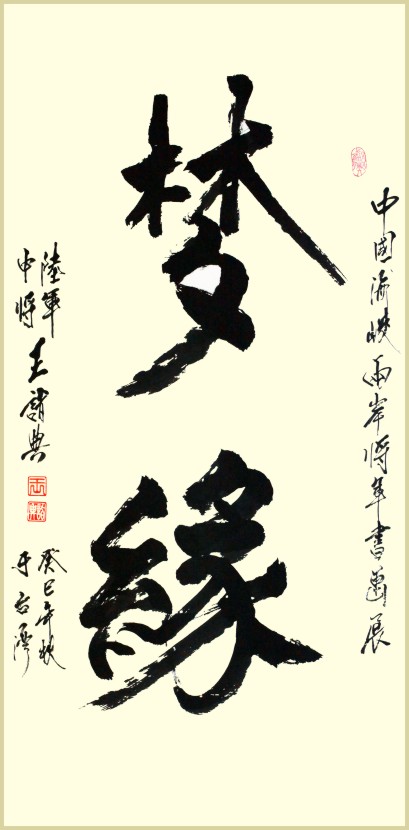 中國海峽兩岸将軍書畫展
梦緣
陸軍
中将
王 典
癸巳年秋
于台灣